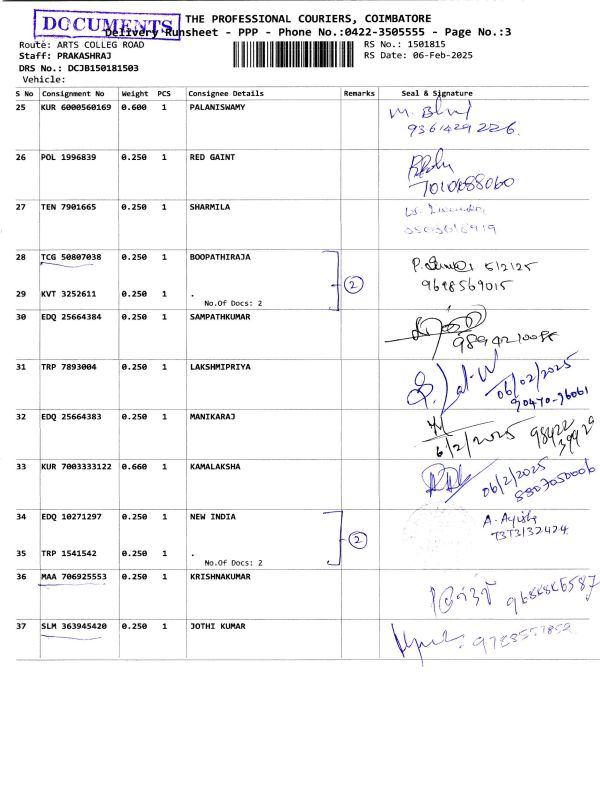 DOCUMENTS
THE PROFESSIONAL COURIERS, COIMBATORE
Delivery Runsheet - PPP - Phone No.:0422-3505555 - Page No.:3
Route: ARTS COLLEG ROAD
RS No.: 1501815
Staff: PRAKASHRAJ
RS Date: 06-Feb-2025
DRS No.: DCJB150181503
Vehicle:
S No Consignment No Weight PCS Consignee Details Remarks Seal & Signature
25 KUR 6000560169 0.600 1 PALANISWAMY
9361429226
26 POL 1996839 0.250 1 RED GAINT
27 TEN 7901665 0.250 1 SHARMILA
28 TCG 50807038 0.250 1 BOOPATHIRAJA
5/2/25
2
9698569015
29 KVT 3252611 0.250 1 .
No.Of Docs: 2
30 EDQ 25664384 0.250 1 SAMPATHKUMAR
31 TRP 7893004 0.250 1 LAKSHMIPRIYA
06/02/2025
90470-96061
32 EDQ 25664383 0.250 1 MANIKARAJ
6/2/2025
33 KUR 7003333122 0.660 1 KAMALAKSHA
06/2/2025
34 EDQ 10271297 0.250 1 NEW INDIA
2
7373132424
35 TRP 1541542 0.250 1 .
No.Of Docs: 2
36 MAA 706925553 0.250 1 KRISHNAKUMAR
37 SLM 363945420 0.250 1 JOTHI KUMAR